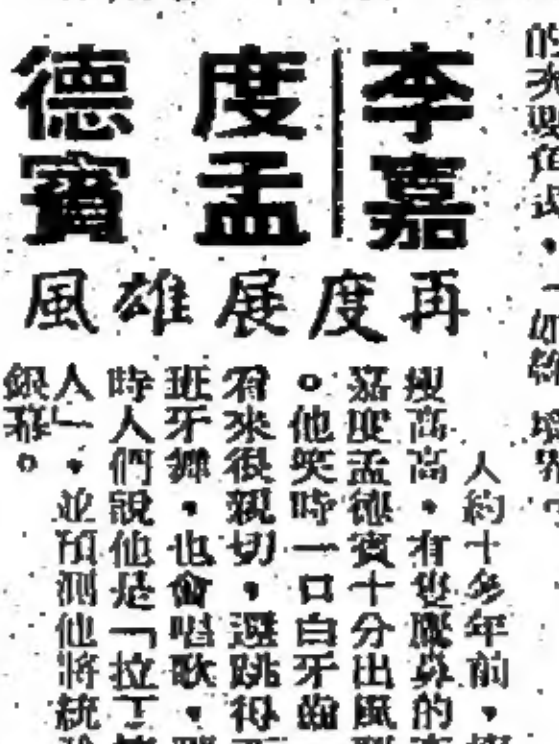 李嘉
度孟
德賓
再度展雄風
人約十多年前，
瘦高高，有隻鷹鼻的
嘉度孟德賓十分出風
。他笑時一口白牙齒
看來很親切，還跳得
班牙舞，也會唱歌，
時人們說他是「拉丁
人」，並預測他將統
銀幕。